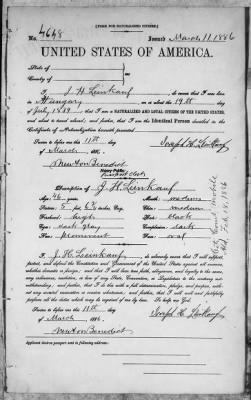 [FORM FOR NATURALIZED CITIZEN.]
No. 4648 Issued March 11 1886
UNITED STATES OF AMERICA.
State of
County of
I, J H Leinkauf, do swear that I was born
in Hungary on or about the 19th day
of July, 1839, that I am a NATURALIZED AND LOYAL CITIZEN OF THE UNITED STATES,
and about to travel abroad; and further, that I am the Identical Person described in the
Certificate of Naturalization herewith presented.
Sworn to before me this 11th day
of March 1886
Joseph H. Leinkauf
Newton Benedict
Notary Public
Description of J. H. Leinkauf
Age: 46 years
Mouth: medium
Stature: 5 feet inches, Eng.
Chin: medium
Forehead: high
Hair: black
Eyes: dark gray
Complexion: dark
Nose: prominent
Face: oval
I, J. H. Leinkauf, do solemnly swear that I will support,
protect, and defend the Constitution and Government of the United States against all enemies,
whether domestic or foreign; and that I will bear true faith, allegiance, and loyalty to the same,
any ordinance, resolution, or law of any State, Convention, or Legislature to the contrary notwithstanding;
and further, that I do this with a full determination, pledge, and purpose, without
any mental reservation or evasion whatsoever; and further, that I will well and faithfully
perform all the duties which may be required of me by law. So help me God.
Sworn to before me this 11th day
of March, 1886.
Joseph H. Leinkauf
Newton Benedict
Applicant desires passport sent to following address: